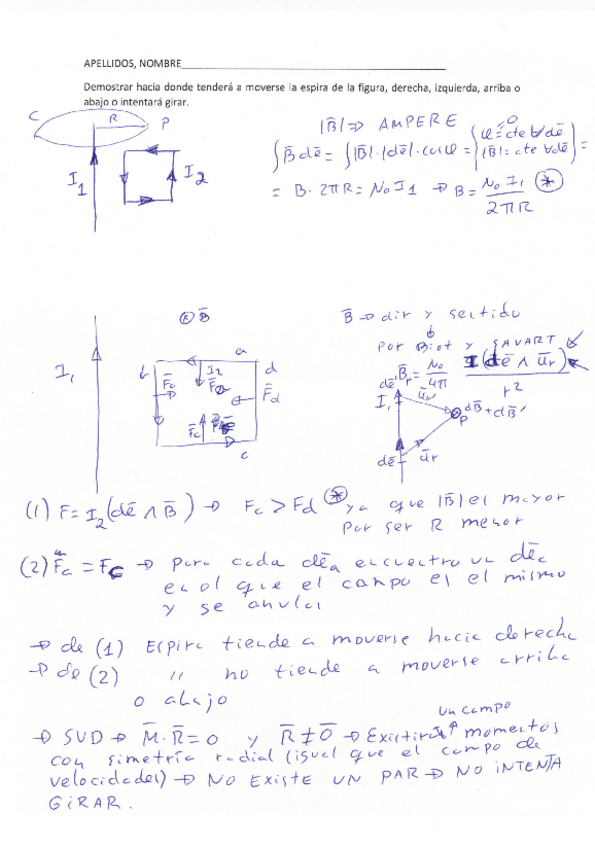 APELLIDOS, NOMBRE
Demostrar hacia donde tenderá a moverse la espira de la figura, derecha, izquierda, arriba o
abajo o intentará girar.
C R P
I₁ I₂
|B̄| ⇒ AMPERE
∫B̄dē = ∫|B̄|·|dē|·cosφ = {φ = cte ∀dē |B̄| = cte ∀dē} =
= B·2πR = μ₀ I₁ → B = μ₀ I₁ / 2πR (*)
B̄
B̄ → dir y sentido
por Biot y SAVART
I₁ b a d c
(1) F̄ = I₂(dē ∧ B̄) → Fc > Fd (*) ya que |B̄| es mayor
por ser R menor
(2) Fa = Fc → para cada dēa encuentro un dēc
en el que el campo es el mismo
y se anulan
→ de (1) Espira tiende a moverse hacia derecha
→ de (2) " no tiende a moverse arriba
o abajo
un campo
→ SUD → M̄·R̄ = 0 y R̄ ≠ 0̄ → Existirá momentos
con simetría radial (igual que el campo de
velocidades) → NO EXISTE UN PAR → NO INTENTA
GIRAR.